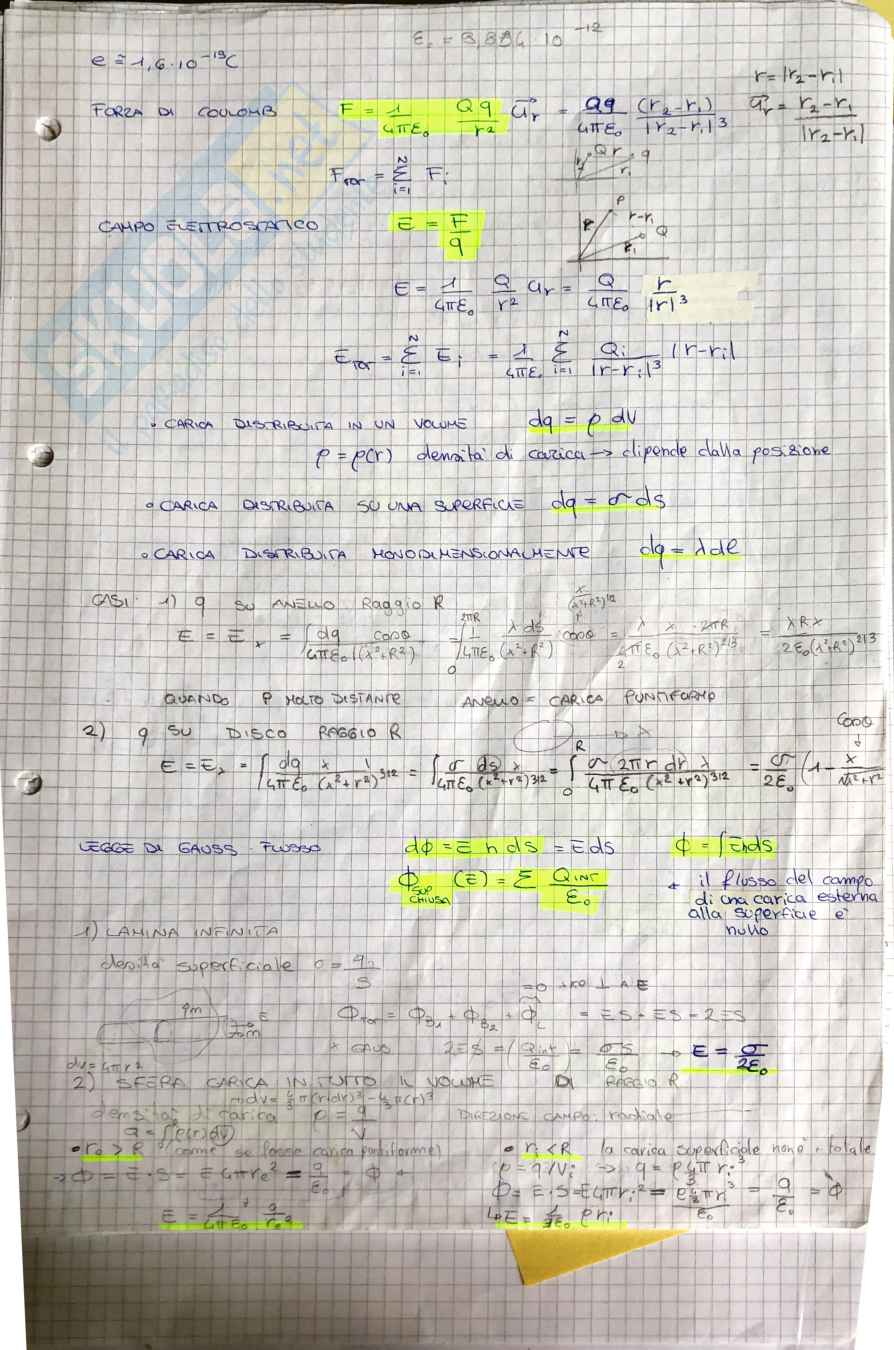 ε₀ = 8,854 · 10⁻¹²
e ≅ 1,6 · 10⁻¹⁹ C
r = |r₂ - r₁|
FORZA DI COULOMB F = 1/4πε₀ Qq/r² a⃗r = Qq/4πε₀ (r₂-r₁)/|r₂-r₁|³ a⃗r = r₂-r₁/|r₂-r₁|
Q r q
r₁
F_TOT = Σ_{i=1}^{N} F_i
CAMPO ELETTROSTATICO E = F/q
P
r-r₁
Q
E = 1/4πε₀ Q/r² ar = Q/4πε₀ r/|r|³
E_TOT = Σ_{i=1}^{N} E_i = 1/4πε₀ Σ_{i=1}^{N} Qi/|r-ri|³ |r-ri|
• CARICA DISTRIBUITA IN UN VOLUME dq = ρ dV
ρ = ρ(r) densità di carica → dipende dalla posizione
• CARICA DISTRIBUITA SU UNA SUPERFICIE dq = σ ds
• CARICA DISTRIBUITA MONODIMENSIONALMENTE dq = λ dl
x/(x²+R²)^1/2
CASI: 1) q SU ANELLO Raggio R
E = E_x = ∫ dq cosθ/4πε₀ (x²+R²) = ∫_0^{2πR} 1/4πε₀ λ ds/(x²+R²) cosθ = λ/4πε₀ x · 2πR/(x²+R²)^2/3 = λRx/2ε₀(x²+R²)^2/3
QUANDO P MOLTO DISTANTE ANELLO = CARICA PUNTIFORME
2) q SU DISCO RAGGIO R
cosθ
E = E_x = ∫ dq/4πε₀ x/(x²+r²)^3/2 = ∫ σ ds x/4πε₀ (x²+r²)^3/2 = ∫_0^R σ 2πr dr x/4πε₀ (x²+r²)^3/2 = σ/2ε₀ (1 - x/√x²+r²
LEGGE DI GAUSS - FLUSSO dϕ = E n ds = E ds ϕ = ∫ E n ds
ϕ SUP CHIUSA (E) = Σ Q_INT/ε₀
il flusso del campo
di una carica esterna
alla superficie è
nullo
1) LAMINA INFINITA
densità superficiale σ = q/S
=0 ⊥ A E
ϕ_TOT = ϕ_B1 + ϕ_B2 + ϕ_L = ES + ES = 2ES
x GAUSS 2ES = (Qint/ε₀) = σS/ε₀ → E = σ/2ε₀
dv = 4πr²
2) SFERA CARICA IN TUTTO IL VOLUME DI RAGGIO R
→ dv = 4/3 π(r+dr)³ - 4/3 π(r)³
densità di carica ρ = q/V DIREZIONE CAMPO: radiale
q = ∫ρ(r)dV
• re > R (come se fosse carica puntiforme)
→ ϕ = E · S = E 4πre² = q/ε₀
E = 1/4πε₀ q/re²
• ri < R la carica superficiale non è totale
ρ = q/Vi → q = ρ 4/3 π ri³
ϕ = E · S = E 4πri² = ρ 4/3 πri³/ε₀ = q/ε₀ = ϕ
↳ E = 1/3ε₀ ρ ri